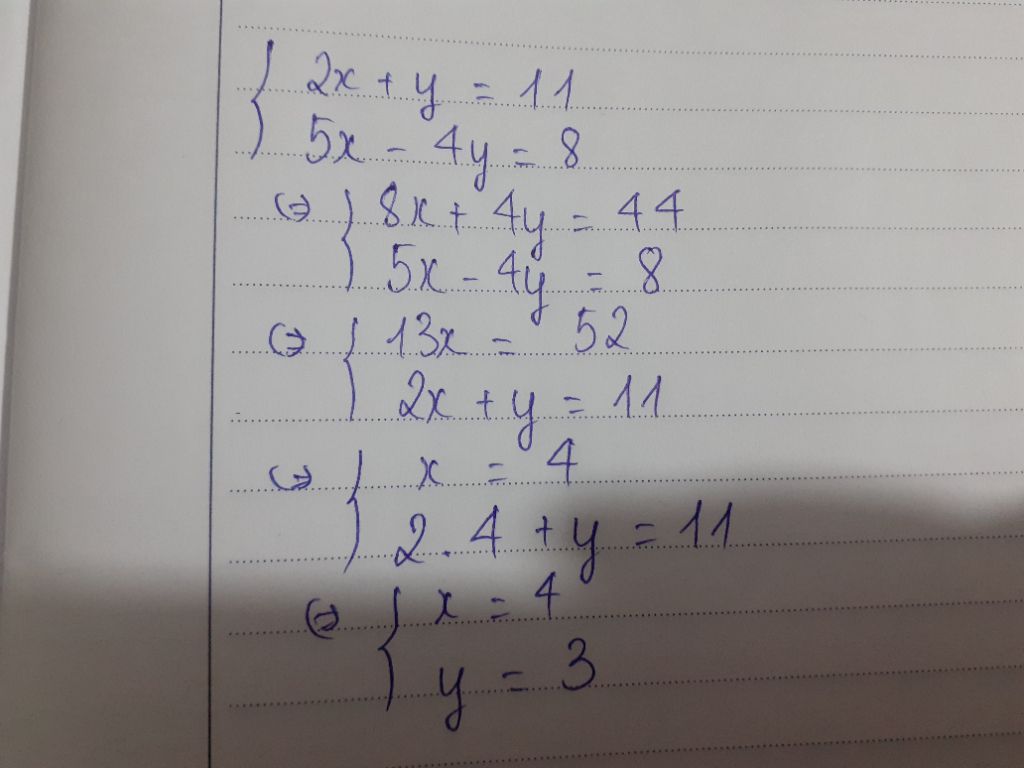 { 2x + y = 11
5x - 4y = 8
⇔ { 8x + 4y = 44
5x - 4y = 8
⇔ { 13x = 52
2x + y = 11
⇔ { x = 4
2 . 4 + y = 11
⇔ { x = 4
y = 3